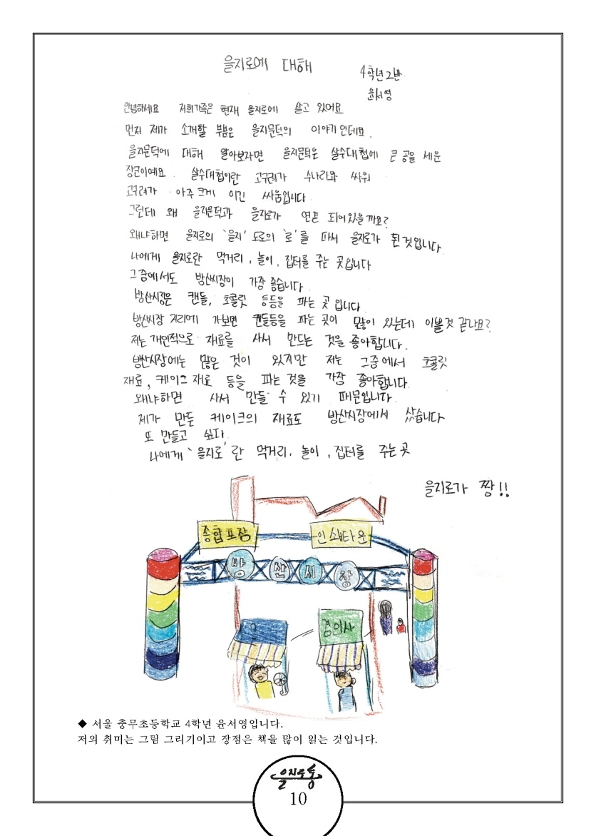 을지로에 대해
4학년2반
윤서영
안녕하세요 저희가족은 현재 을지로에 살고 있어요
먼저 제가 소개할 부분은 을지문덕의 이야기 인데요.
을지문덕에 대해 알아보자면 을지문덕은 살수대첩에 큰 공을 세운
장군이예요. 살수대첩이란 고구려가 수나라와 싸워
고구려가 아주 크게 이긴 싸움입니다
그런데 왜 을지문덕과 을지로가 연관 되어있을까요?
왜냐하면 을지로의 '을지' 도로의 '로'를 따서 을지로가 된 것입니다
나에게 을지로란 먹거리, 놀이, 집터를 주는 곳입니다
그중에서도 방산시장이 가장 좋습니다.
방산시장은 캔들, 초콜릿 등등을 파는 곳 입니다
방산시장 거리에 가보면 캔들등을 파는 곳이 많이 있는데 이쁠것 같나요?
저는 개인적으로 재료를 사서 만드는 것을 좋아합니다.
방산시장에는 많은 것이 있지만 저는 그중에서 초콜릿
재료, 케이크 재료 등을 파는 것을 가장 좋아합니다.
왜냐하면 사서 만들 수 있기 때문입니다.
제가 만든 케이크의 재료도 방산시장에서 샀습니다
또 만들고 싶다.
나에게 '을지로'란 먹거리, 놀이, 집터를 주는곳
을지로가 짱!!
종합포장
인쇄타운
방산시장
◆ 서울 충무초등학교 4학년 윤서영입니다.
저의 취미는 그림 그리기이고 장점은 책을 많이 읽는 것입니다.
10